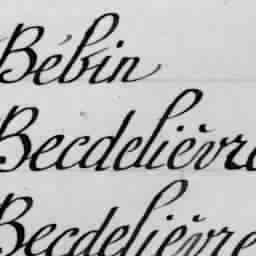 Bébin
Becdelièvre
Becdelièvre